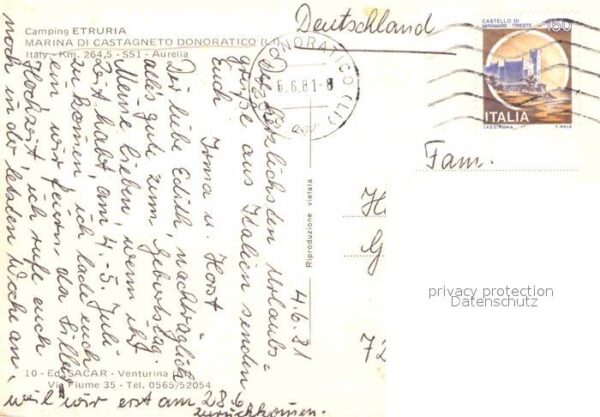 Camping ETRURIA
MARINA DI CASTAGNETO DONORATICO (LI)
Italy - Km. 264,5 - SS1 - Aurelia
4.6.81
Die herzlichsten Urlaubs-
grüße aus Italien senden
Euch Irma u. Horst
Dir liebe Edith, nachträglich
alles gute zum Geburtstag.
Meine lieben, wenn ihr
Zeit habt, am 4.-5. Juli
zu kommen, ich lade euch
ein, wir feiern da Silber
Hochzeit, ich rufe euch
noch in der letzten Woche an,
weil wir erst am 28.6
zurückkommen.
10 - Ed. SACAR - Venturina
Via Fiume 35 - Tel. 0565/52054
Riproduzione vietata
DONORATICO (LI)
6.6.81-8
Deutschland
CASTELLO DI
MIRAMARE TRIESTE
150
ITALIA
I.P.Z.S. ROMA
Fam.
H
G
72
privacy protection
Datenschutz